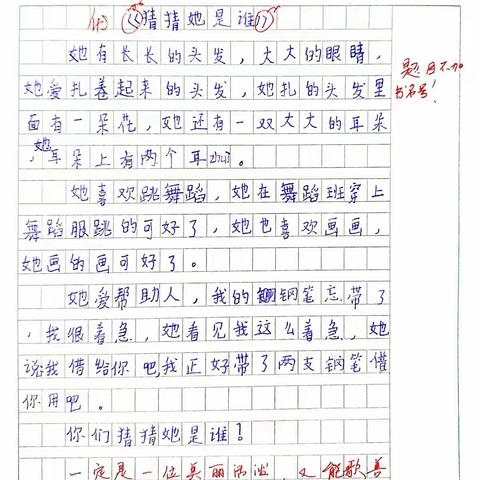 《猜猜她是谁》
她有长长的头发，大大的眼睛，
她爱扎卷起来的头发，她扎的头发里
面有一朵花，她还有一双大大的耳朵
，她耳朵上有两个耳zhuì。
她喜欢跳舞蹈，她在舞蹈班穿上
舞蹈服跳的可好了，她也喜欢画画，
她画的画可好了。
她爱帮助人，我的钢笔忘带了
，我很着急，她看见我这么着急，她
说我借给你吧，我正好带了两支钢笔借
你用吧。
你们猜猜她是谁！
一定是一位美丽活泼，又能歌善
题目不加
书名号！